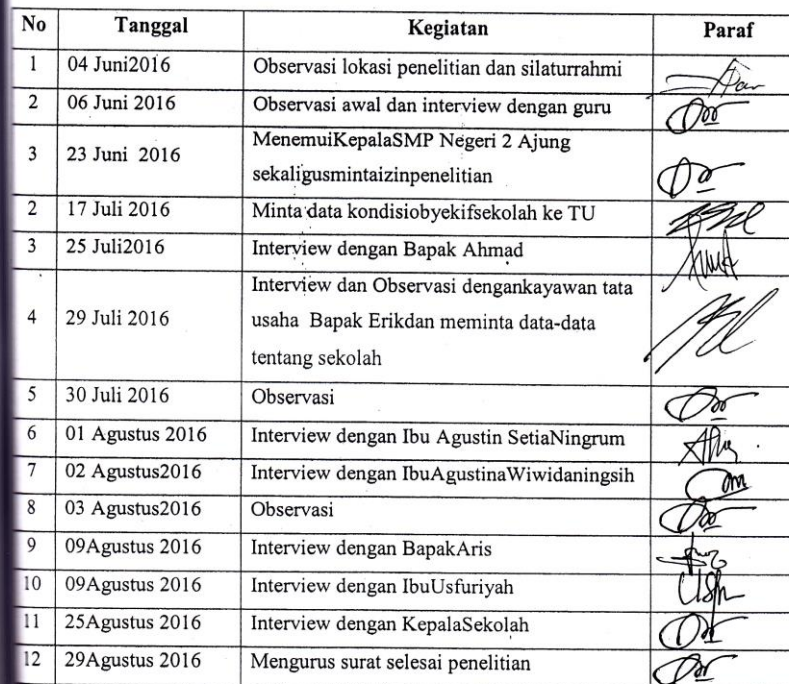 No Tanggal Kegiatan Paraf
1 04 Juni2016 Observasi lokasi penelitian dan silaturrahmi
2 06 Juni 2016 Observasi awal dan interview dengan guru
3 23 Juni 2016 MenemuiKepalaSMP Negeri 2 Ajung
sekaligusmintaizinpenelitian
2 17 Juli 2016 Minta data kondisiobyekifsekolah ke TU
3 25 Juli2016 Interview dengan Bapak Ahmad
Interview dan Observasi dengankayawan tata
4 29 Juli 2016 usaha Bapak Erikdan meminta data-data
tentang sekolah
5 30 Juli 2016 Observasi
6 01 Agustus 2016 Interview dengan Ibu Agustin SetiaNingrum
7 02 Agustus2016 Interview dengan IbuAgustinaWiwidaningsih
8 03 Agustus2016 Observasi
9 09Agustus 2016 Interview dengan BapakAris
10 09Agustus 2016 Interview dengan IbuUsfuriyah
11 25Agustus 2016 Interview dengan KepalaSekolah
12 29Agustus 2016 Mengurus surat selesai penelitian